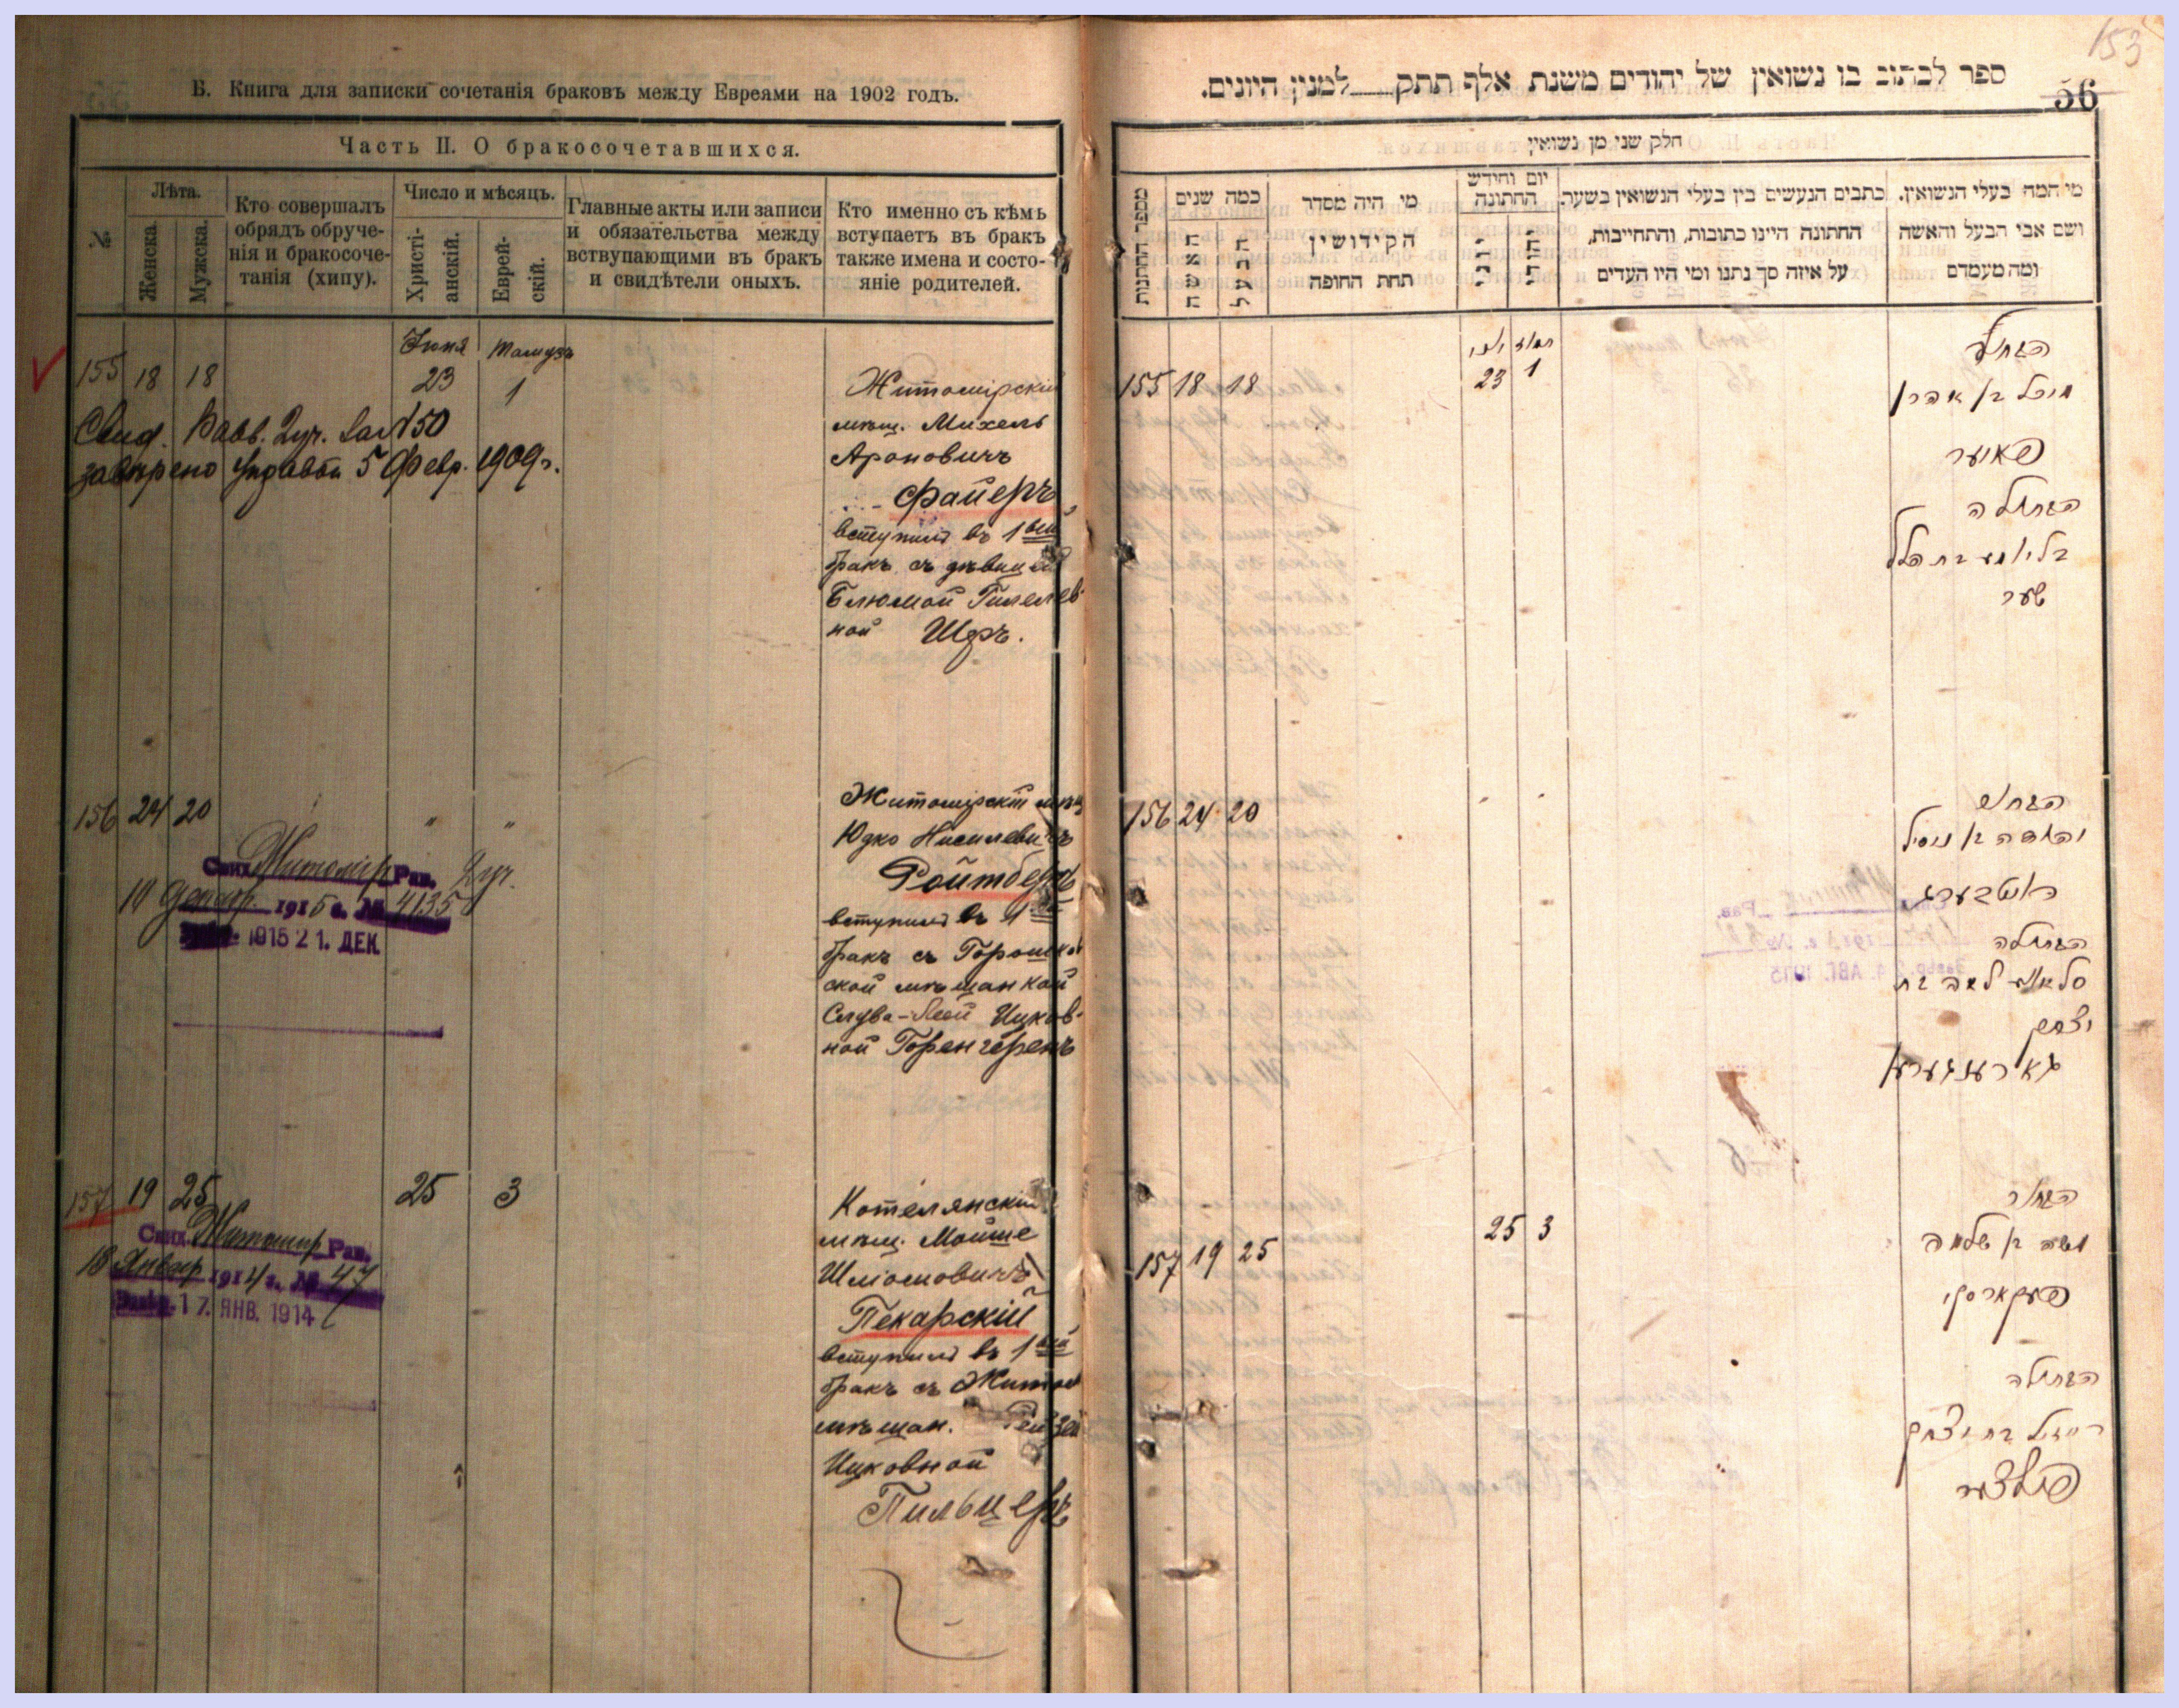 Б. Книга для записки сочетанія браковъ между Евреями на 1902 годъ.
Часть II. О бракосочетавшихся.
№
Лѣта.
Женска.
Мужска.
Кто совершалъ
обрядъ обруче-
нія и бракосоче-
танія (хипу).
Число и мѣсяцъ.
Христі-
анскій.
Еврей-
скій.
Главные акты или записи
и обязательства между
вступающими въ бракъ
и свидѣтели оныхъ.
Кто именно съ кѣмъ
вступаетъ въ бракъ
также имена и состо-
яніе родителей.
Іюня Тамузъ
155 18 18 23 1
Свид. Равв. Луч. за № 50
завѣрено Управой 5 Февр. 1909 г.
Житомірскій
мѣщ. Михель
Ароновичъ
Файеръ
вступилъ въ 1вый
бракъ съ дѣвицей
Блюмой Гилелев-
ной Шеръ.
156 24 20 " "
Свид. Житомір Рав. Луч.
10 Декабр. 1915 г. № 4135
1915 21. ДЕК.
Житомірскій мѣщ
Юдко Нисилевичъ
Ройтбергъ
вступилъ въ 1вый
бракъ съ Горошков
ской мѣщанкой
Слува-Леей Ицков-
ной Горенгеренъ
157 19 25 25 3
Свид. Житомир Рав.
18 Январ 1914 г. № 47
17. ЯНВ. 1914
Котелянскій
мѣщ. Мойше
Шліомовичъ
Пекарскій
вступилъ въ 1вый
бракъ съ Житом
мѣщан. Рейзей
Ицковной
Пильцеръ
153
ספר לכתוב בו נשואין של יהודים משנת אלף תתק___למנין היונים.
56
חלק שני מן נשואין
מספר החתונות
כמה שנים
האשה
הבעל
מי היה מסדר
הקידושין
תחת החופה
יום וחודש
החתונה
יוני
יהודי
כתבים הנעשים בין בעלי הנשואין בשער.
החתונה היינו כתובות, והתחייבות,
על איזה סך נתנו ומי היו העדים
מי המה בעלי הנשואין.
ושם אבי הבעל והאשה
ומה מעמדם
יוני תמוז
155 18 18 23 1
הבחור
מיכל בן אהרן
פאיער
הבתולה
בליומע בת הלל
שער
156 24 20 " "
הבחור
יהודה בן ניסיל
ראיטבערג
הבתולה
סלאווע לאה בת
יצחק
גארענגערען
157 19 25 25 3
הבחור
משה בן שלמה
פעקארסקי
הבתולה
רייזיל בת יצחק
פילצער